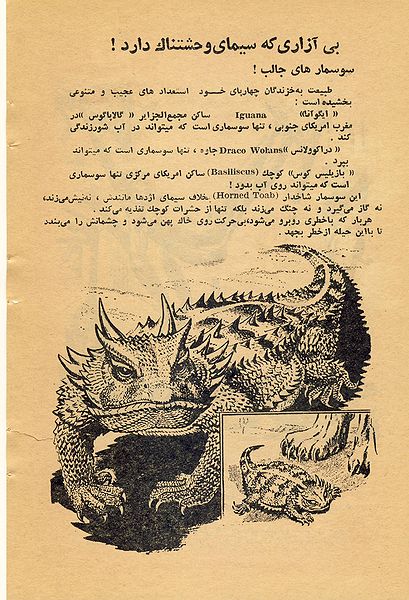 بی آزاری که سیمای وحشتناك دارد !
سوسمار های جالب !
طبیعت به خزندگان چهارپای خـــود استعداد های عجیب و متنوعی
بخشیده است :
« ایگوآنا» Iguana ساکن مجمع‌الجزایر « گالاپاگوس »در
مغرب امریکای جنوبی ، تنها سوسماری است که میتواند در آب شورزندگی
کند .
« دراکوولانس »Draco Wolans جاوه ، تنها سوسماری است که میتواند
بپرد .
« بازیلیس کوس» کوچك (Basiliscus) ساکن امریکای مرکزی تنها سوسماری
است که میتواند روی آب بدود !
این سوسمار شاخدار (Horned Toab) بخلاف سیمای اژدها مانندش ، نه‌نیش‌میزند،
نه گاز می‌گیرد و نه چنگ میزند بلکه تنها از حشرات کوچك تغذیه می‌کند .
هربار که باخطری روبرو می‌شود،بی‌حرکت روی خاك پهن می‌شود و چشمانش را می‌بندد
تا بااین حیله ازخطر بجهد .